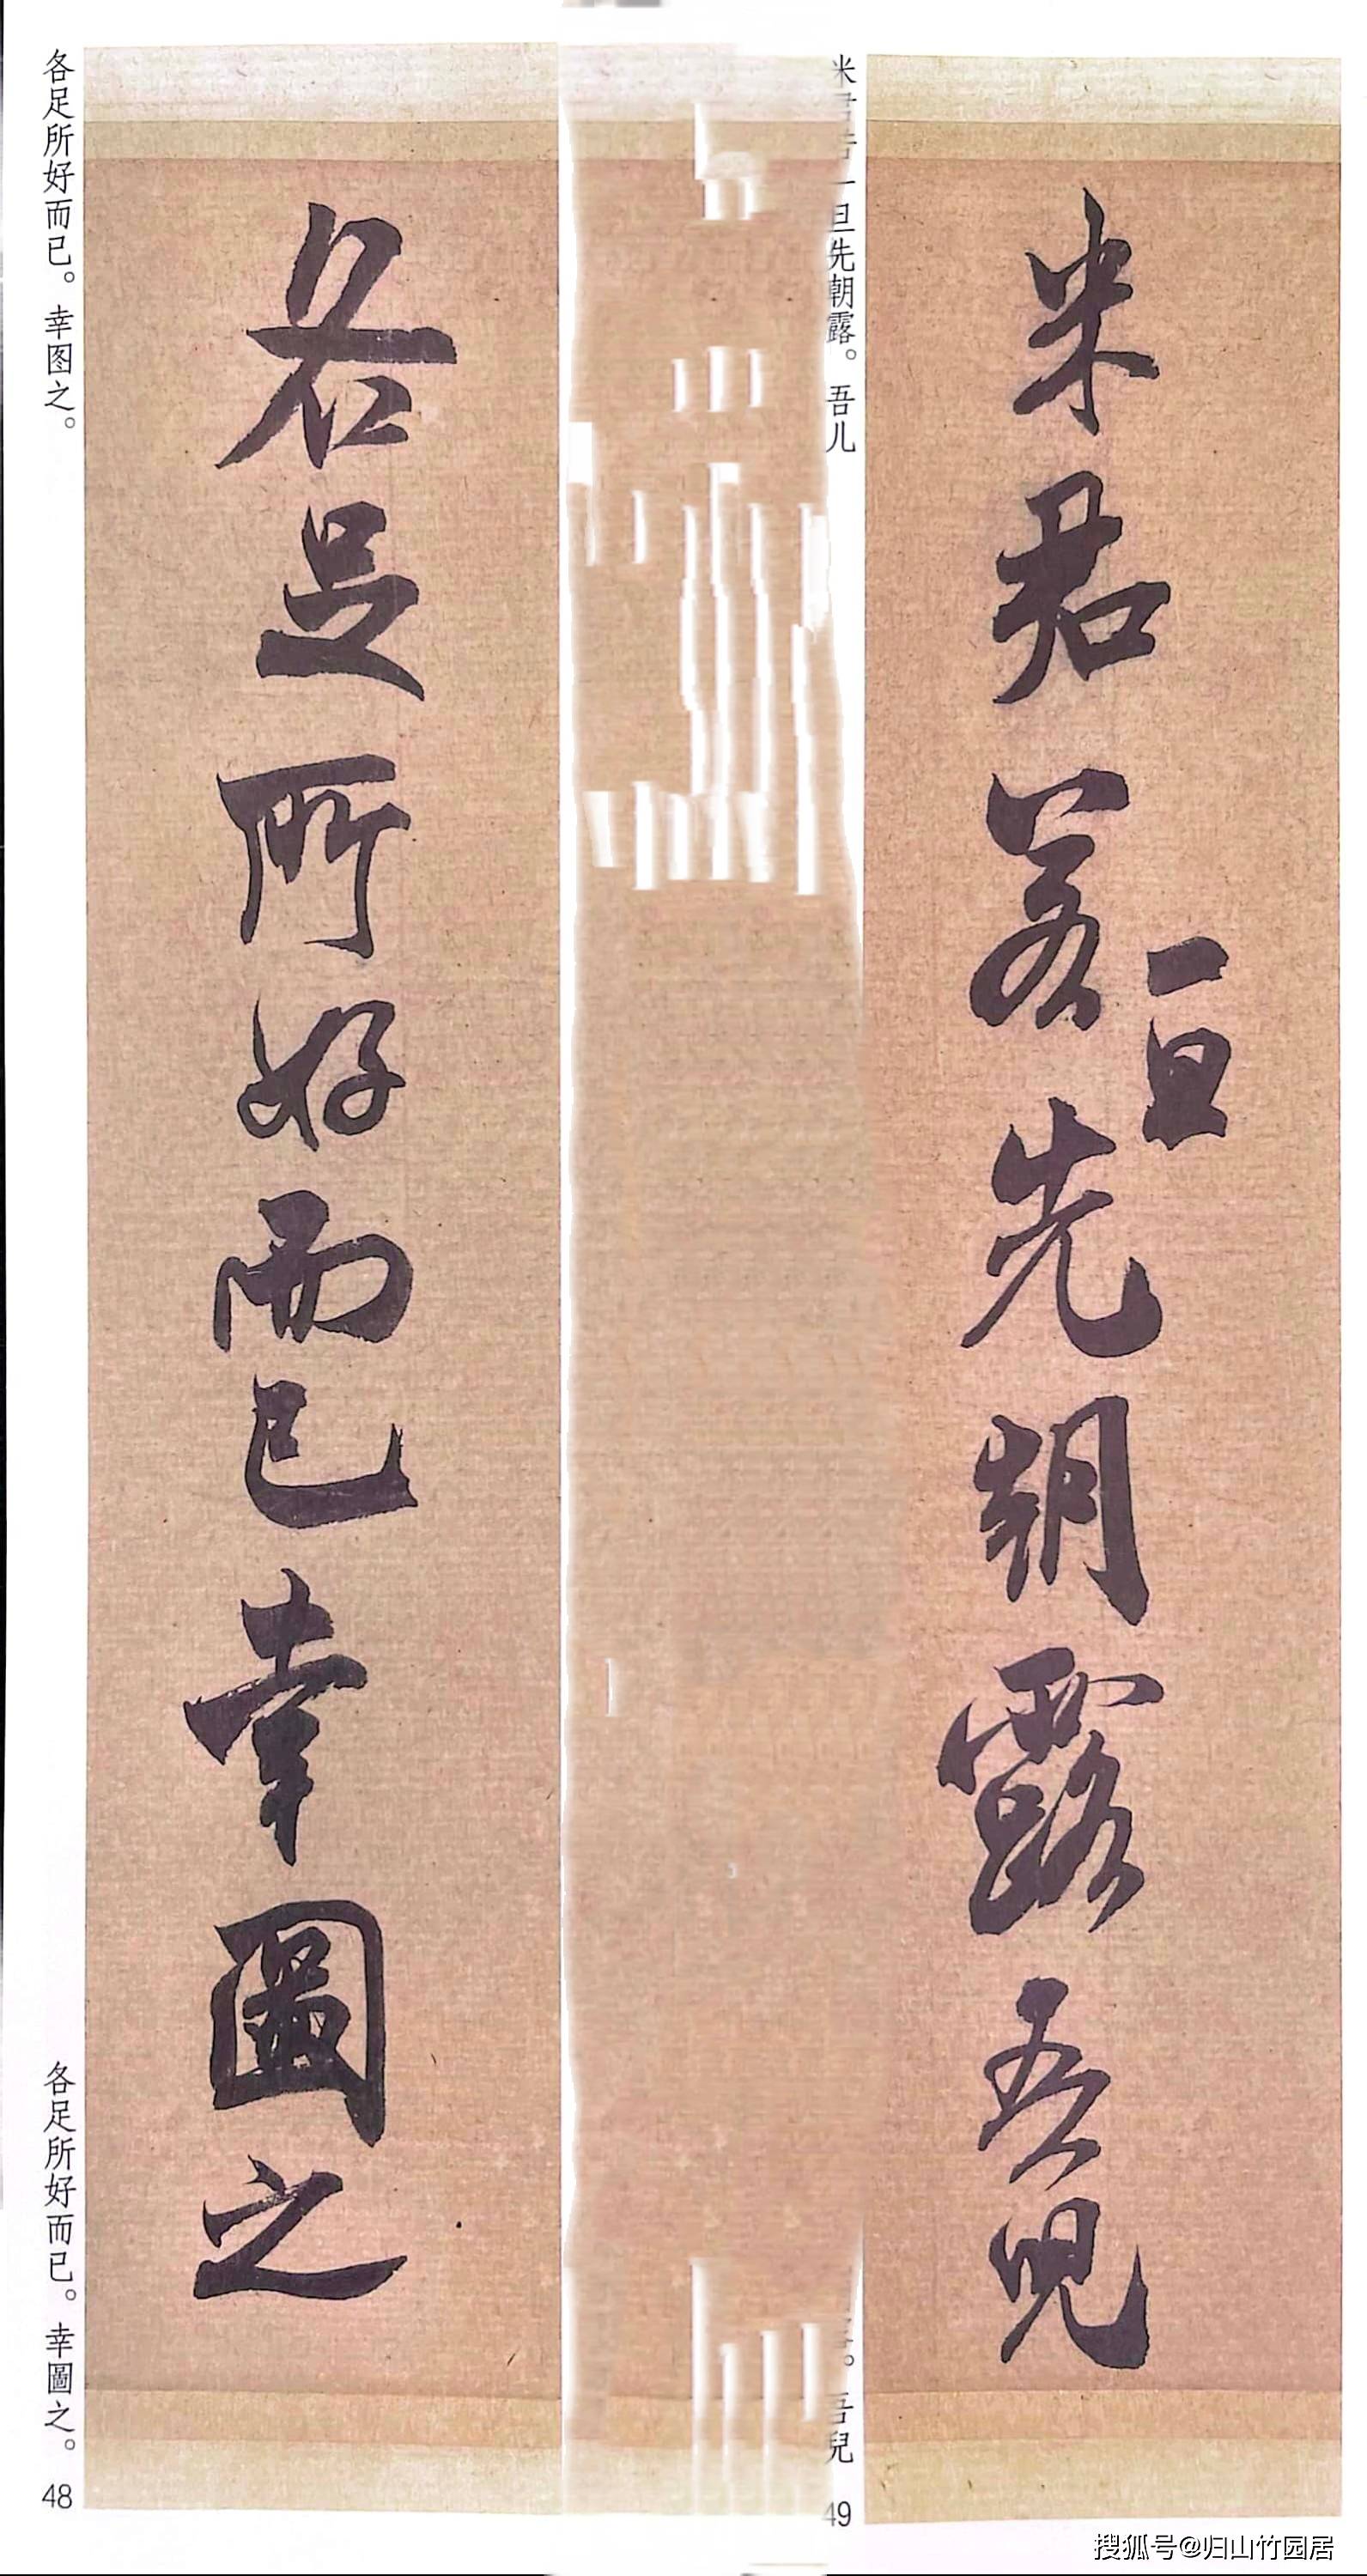 各足所好而已。幸图之。
各足所好而已。幸圖之。
48
各足所好而已幸圖之
米 一旦先朝露。吾儿
。吾兒
49
米君若先朝露吾兒
一旦
搜狐号@归山竹园居